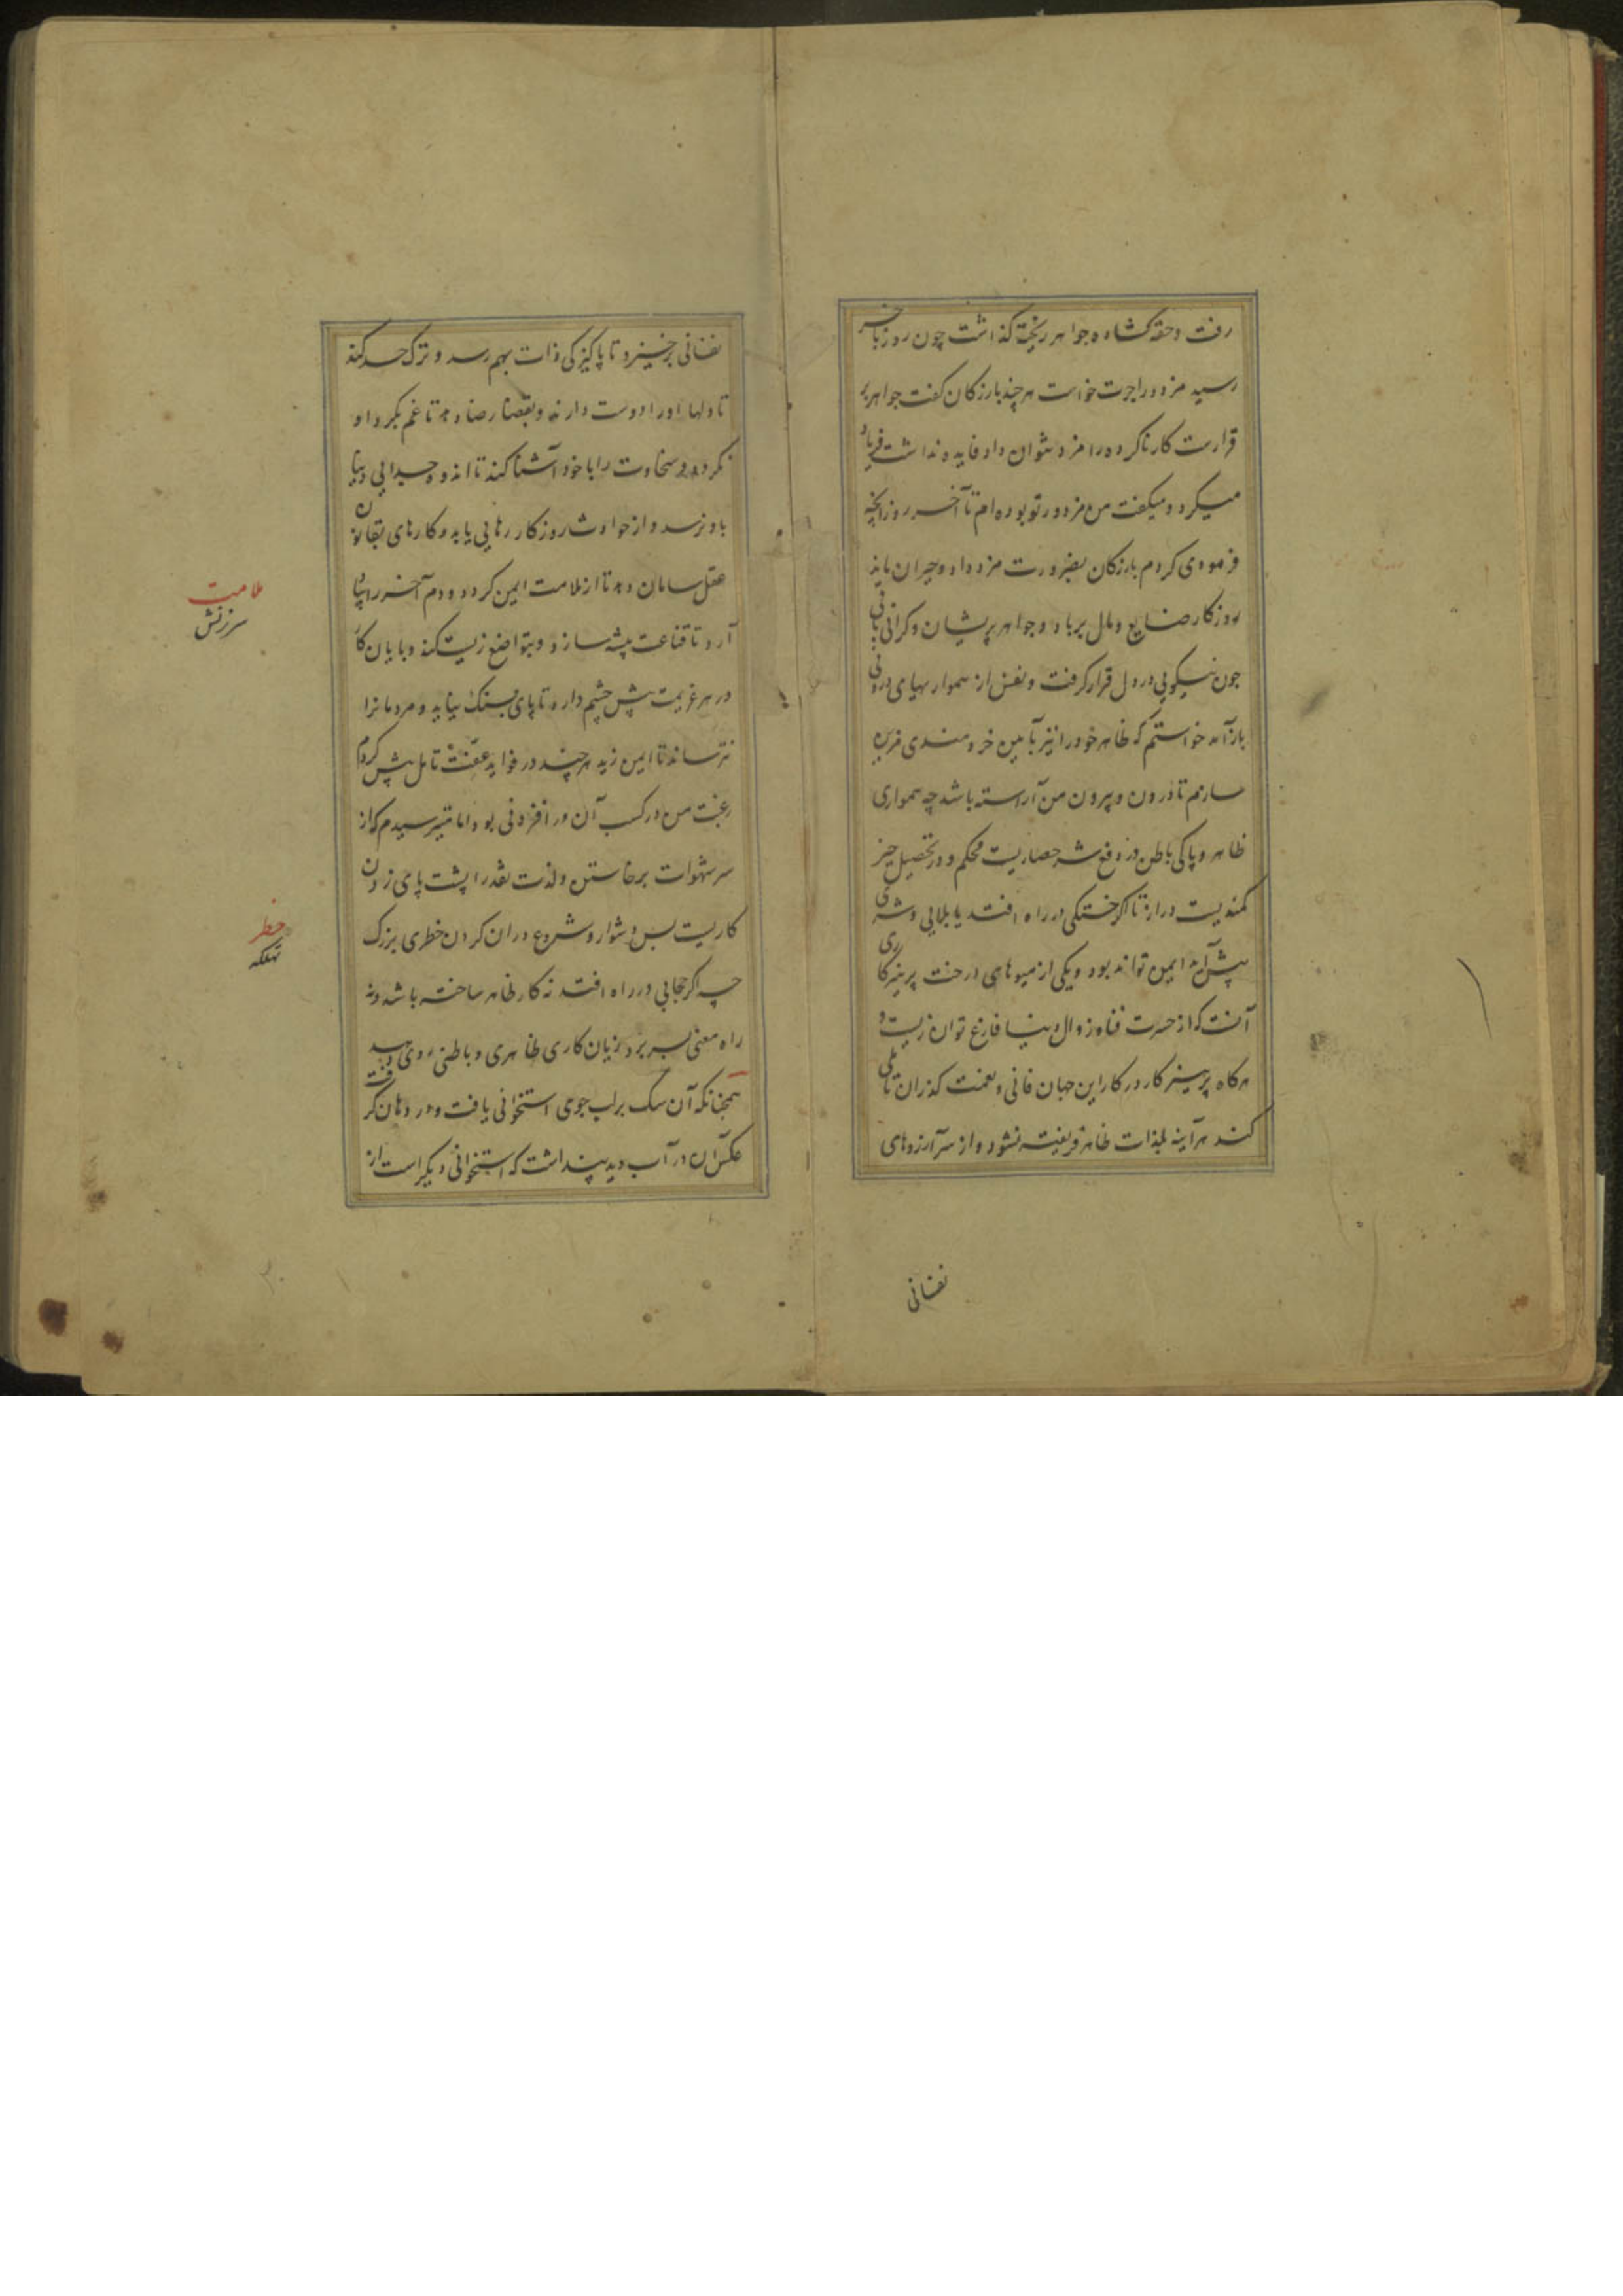 رفت و حقه گشاده جواهر ریخته گذاشت چون روز بآخر
رسید مزدور اجرت خواست هر چند بازرگان گفت جواهر بر
قرارست کار ناکرده را مزد نتوان داد فایده نداشت فریاد
میکرد و میگفت من مزدور تو بوده‌ام تا آخر روز آنچه
فرمودی کردم بازرگان بضرورت مزد داد و حیران ماند
روزگار ضایع و مال برباد و جواهر پریشان و گرانی باقی
چون نیکویی در دل قرار گرفت و نفس از همواریهای درونی
باز آمد خواستم که ظاهر خود را نیز بآیین خردمندی مزین
سازم تا درون و بیرون من آراسته باشد چه همواری
ظاهر و پاکی باطن در دفع شر حصاریست محکم و در تحصیل خیر
کمندیست دراز تا اگر خستگی در راه افتد یا بلایی و شری
پیش آمد ایمن تواند بود و یکی از میوهای درخت پرهیزگاری
آنست که از حسرت فنا و زوال دنیا فارغ توان زیست و
هرگاه پرهیزگار در کار این جهان فانی و نعمت گذران تاملی
کند هرآینه بلذات ظاهر فریفته نشود و از سر آرزوهای
نفسانی
نفسانی برخیزد تا پاکیزگی ذات بهم رسد و ترک حسد کند
تا دلها او را دوست دارند و بقضا رضا دهد تا غم بگرد او
نگردد و سخاوت را با خود آشنا کند تا اندوه جدایی دنیا
باو نرسد و از حوادث روزگار رهایی یابد و کارهای بقانون
عقل سامان دهد تا از ملامت ایمن گردد و دم آخر را بیاد
آرد تا قناعت پیشه سازد و بتواضع زیست کند و پایان کار
در هر عزیمت پیش چشم دارد تا پای بسنگ نیاید و مردمانرا
نترساند تا ایمن زید هر چند در فواید عفت تامل بیش کردم
رغبت من در کسب آن در افزونی بود اما میترسیدم که از
سر شهوات برخاستن و لذت نقد را پشت پای زدن
کاریست بس دشوار و شروع در ان کردن خطری بزرگ
چه اگر حجابی در راه افتد نه کار ظاهر ساخته باشد و نه
راه معنی بسر برد و زیان کاری ظاهری و باطنی روی دهد
همچنانکه آن سگ بر لب جوی استخوانی یافت و در دهان گرفت
عکس آن در آب دید پنداشت که استخوانی دیگر است از
ملامت
سرزنش
خطر
تهلکه